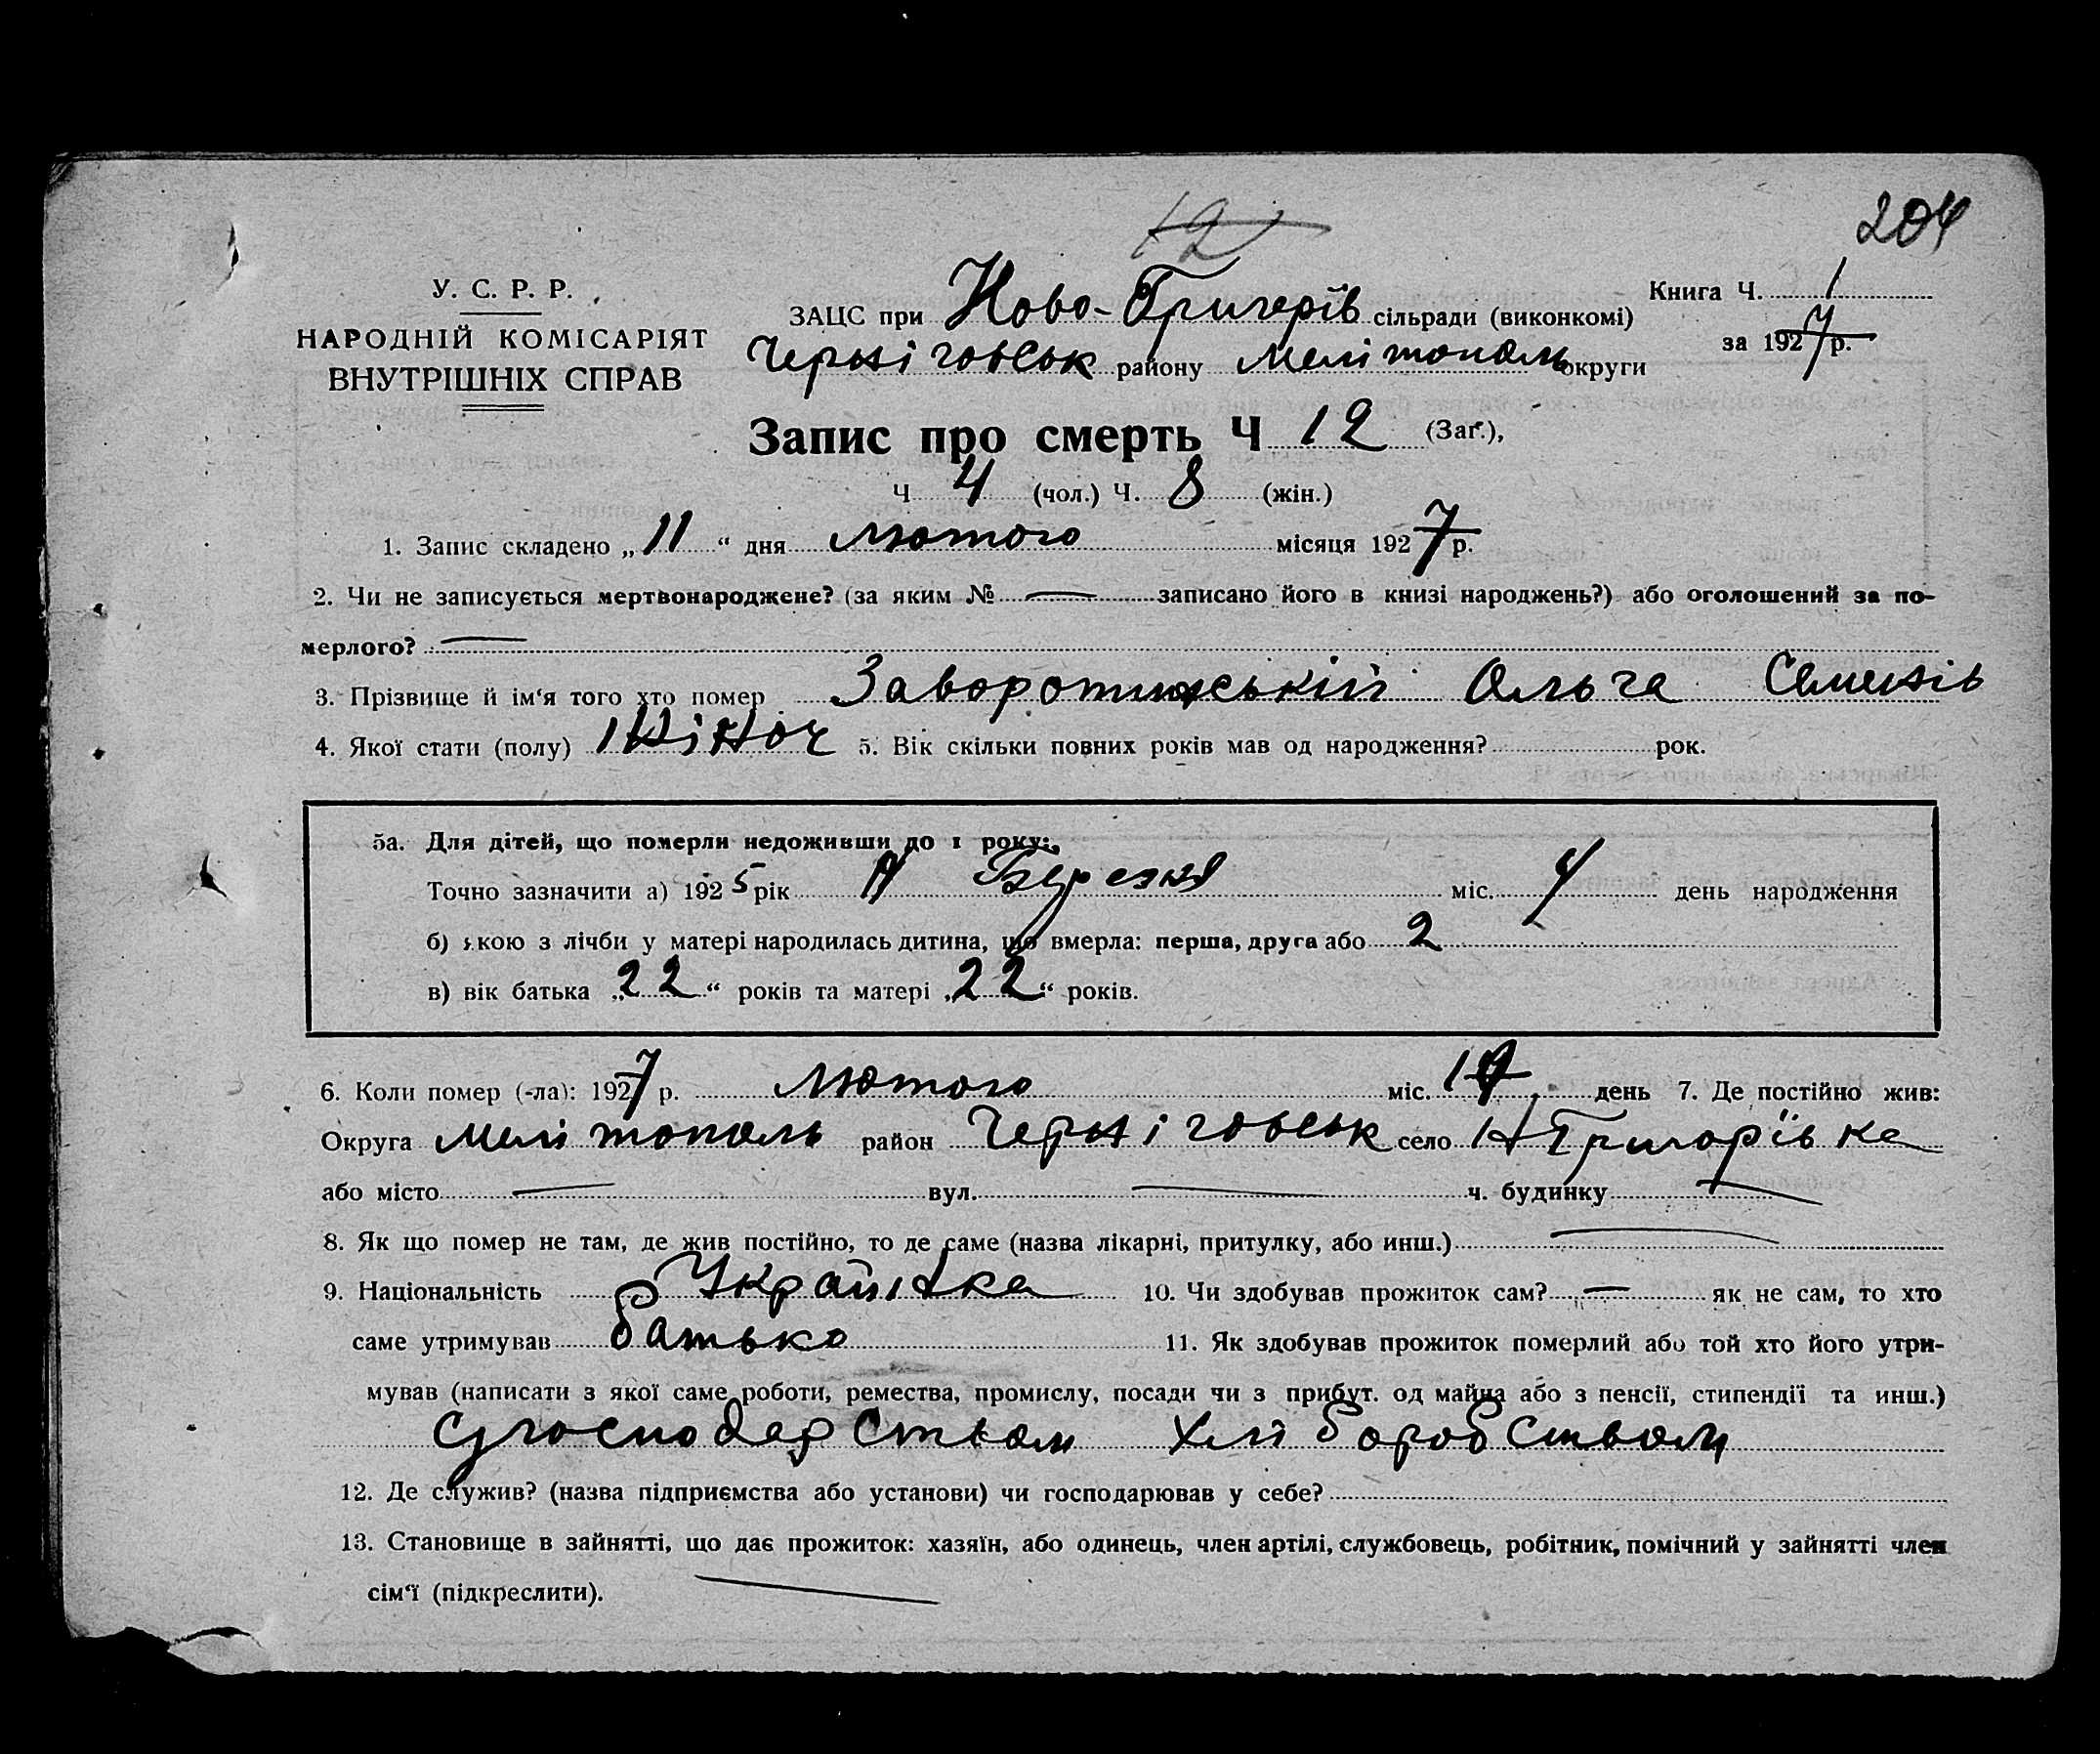 12
204
У. С. Р. Р.
НАРОДНІЙ КОМІСАРІЯТ
ВНУТРІШНІХ СПРАВ
Книга Ч. 1
за 1927 р.
ЗАЦС при Ново-Григорів сільради (виконкомі)
Чернiговськ району Мелiтополь округи
Запис про смерть Ч 12 (Заг.),
Ч 4 (чол.) Ч. 8 (жін.)
1. Запис складено „11“ дня Лютого місяця 1927 р.
2. Чи не записується мертвонароджене? (за яким № — записано його в книзі народжень?) або оголошений за по-
мерлого? —
3. Прізвище й ім‘я того хто помер Заворотинський Ольга Семенів
4. Якої стати (полу) жіноч 5. Вік скільки повних років мав од народження? рок.
5а. Для дітей, що померли недоживши до 1 року:
Точно зазначити а) 1925 рік Березня міс. день народження
б) якою з лічби у матері народилась дитина, що вмерла: перша, друга або 2
в) вік батька „22“ років та матері „22“ років.
6. Коли помер (-ла): 1927 р. Лютого міс. день 7. Де постійно жив:
Округа Мелітополь район Чернiговськ село Н Григорівка
або місто — вул. — ч. будинку —
8. Як що помер не там, де жив постійно, то де саме (назва лікарні, притулку, або инш.) —
9. Національність Українка 10. Чи здобував прожиток сам? — як не сам, то хто
саме утримував батько 11. Як здобував прожиток померлий або той хто його утри-
мував (написати з якої саме роботи, ремества, промислу, посади чи з прибут. од майна або з пенсії, стипендії та инш.)
Сгосподарством Хліборобством
12. Де служив? (назва підприємства або установи) чи господарював у себе?
13. Становище в зайнятті, що дає прожиток: хазяїн, або одинець, член артілі, службовець, робітник, помічний у зайнятті член
сім‘ї (підкреслити). —